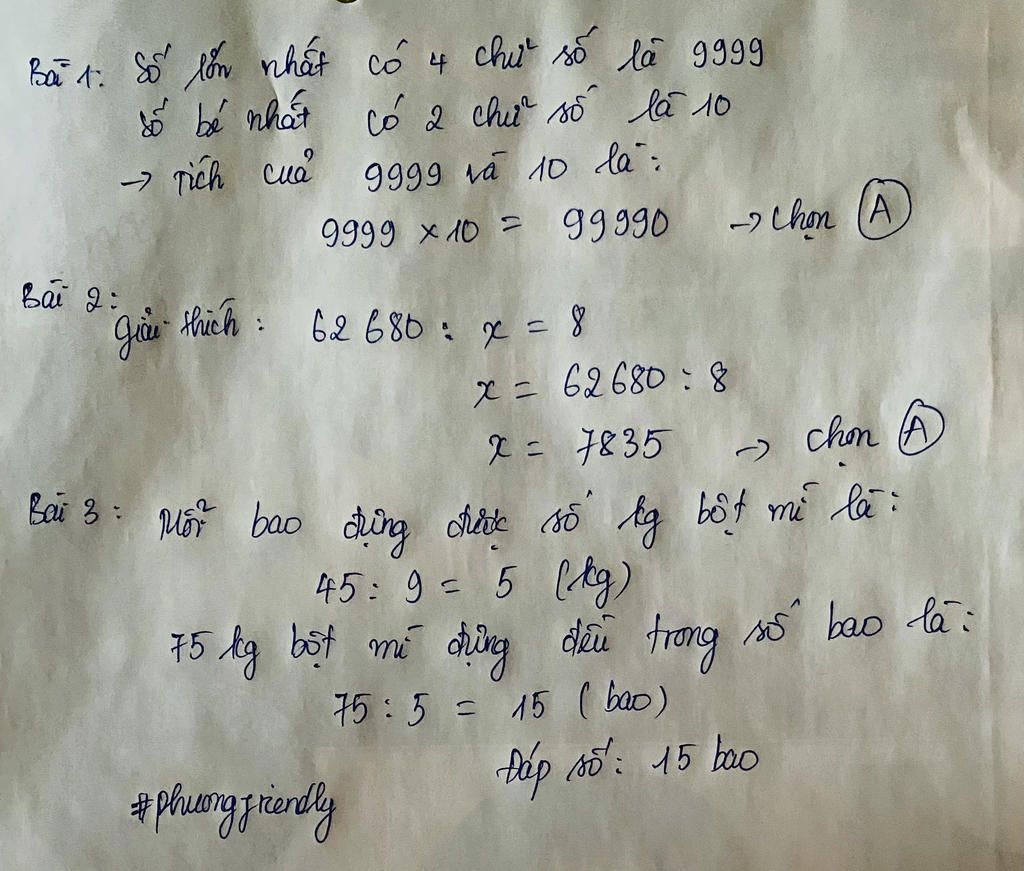 Bài 1: Số lớn nhất có 4 chữ số là 9999
số bé nhất có 2 chữ số là 10
→ Tích của 9999 và 10 là:
9999 × 10 = 99990 → Chọn A
Bài 2:
Giải thích: 62 680 : x = 8
x = 62680 : 8
x = 7835 → Chọn A
Bài 3: Mỗi bao đựng được số kg bột mì là:
45 : 9 = 5 (kg)
75 kg bột mì đựng đều trong số bao là:
75 : 5 = 15 (bao)
Đáp số: 15 bao
#phuongfriendly